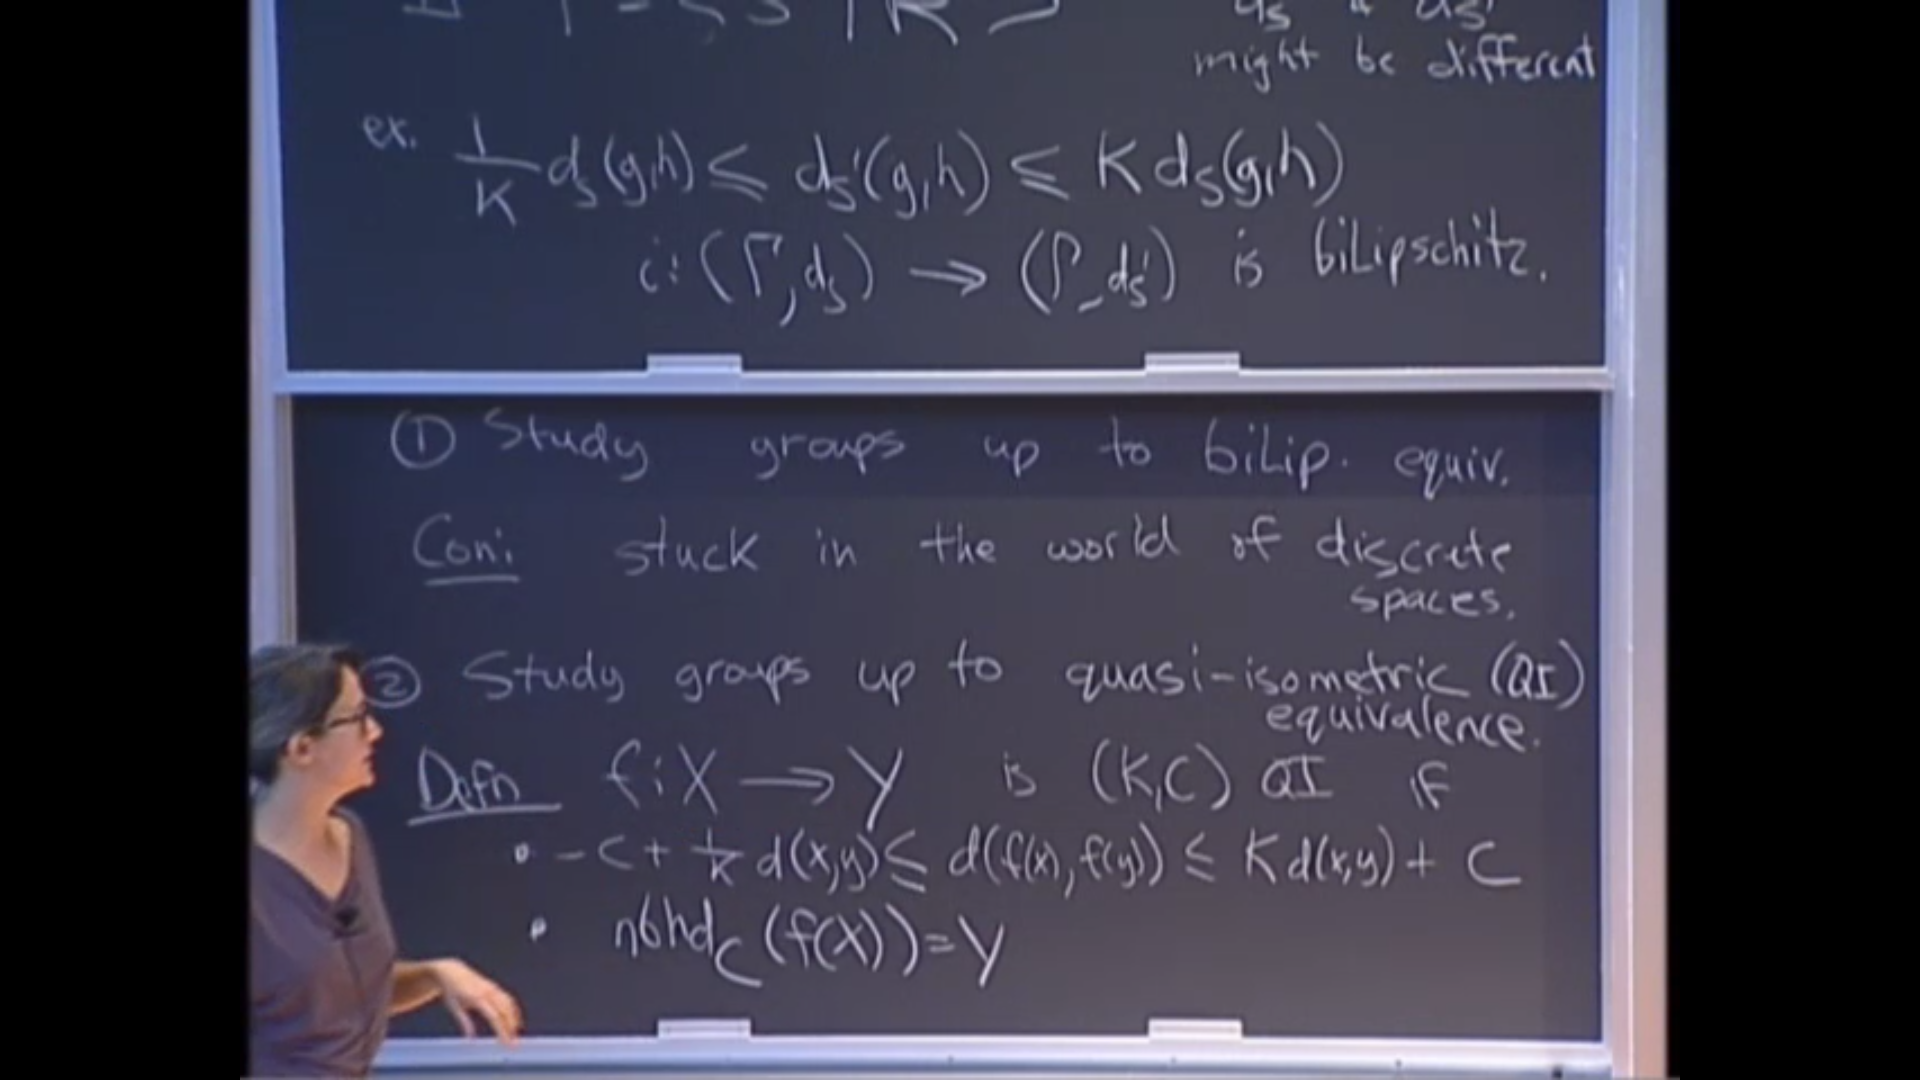 might be different
ex. 1/K d_S(g,h) ≤ d_S'(g,h) ≤ K d_S(g,h)
i: (Γ, d_S) → (Γ, d_S') is biLipschitz.
① Study groups up to biLip. equiv.
Con: stuck in the world of discrete
spaces.
② Study groups up to quasi-isometric (QI)
equivalence.
Defn f: X → Y is (K,C) QI if
• -C + 1/K d(x,y) ≤ d(f(x), f(y)) ≤ K d(x,y) + C
• nbhd_C (f(X)) = Y